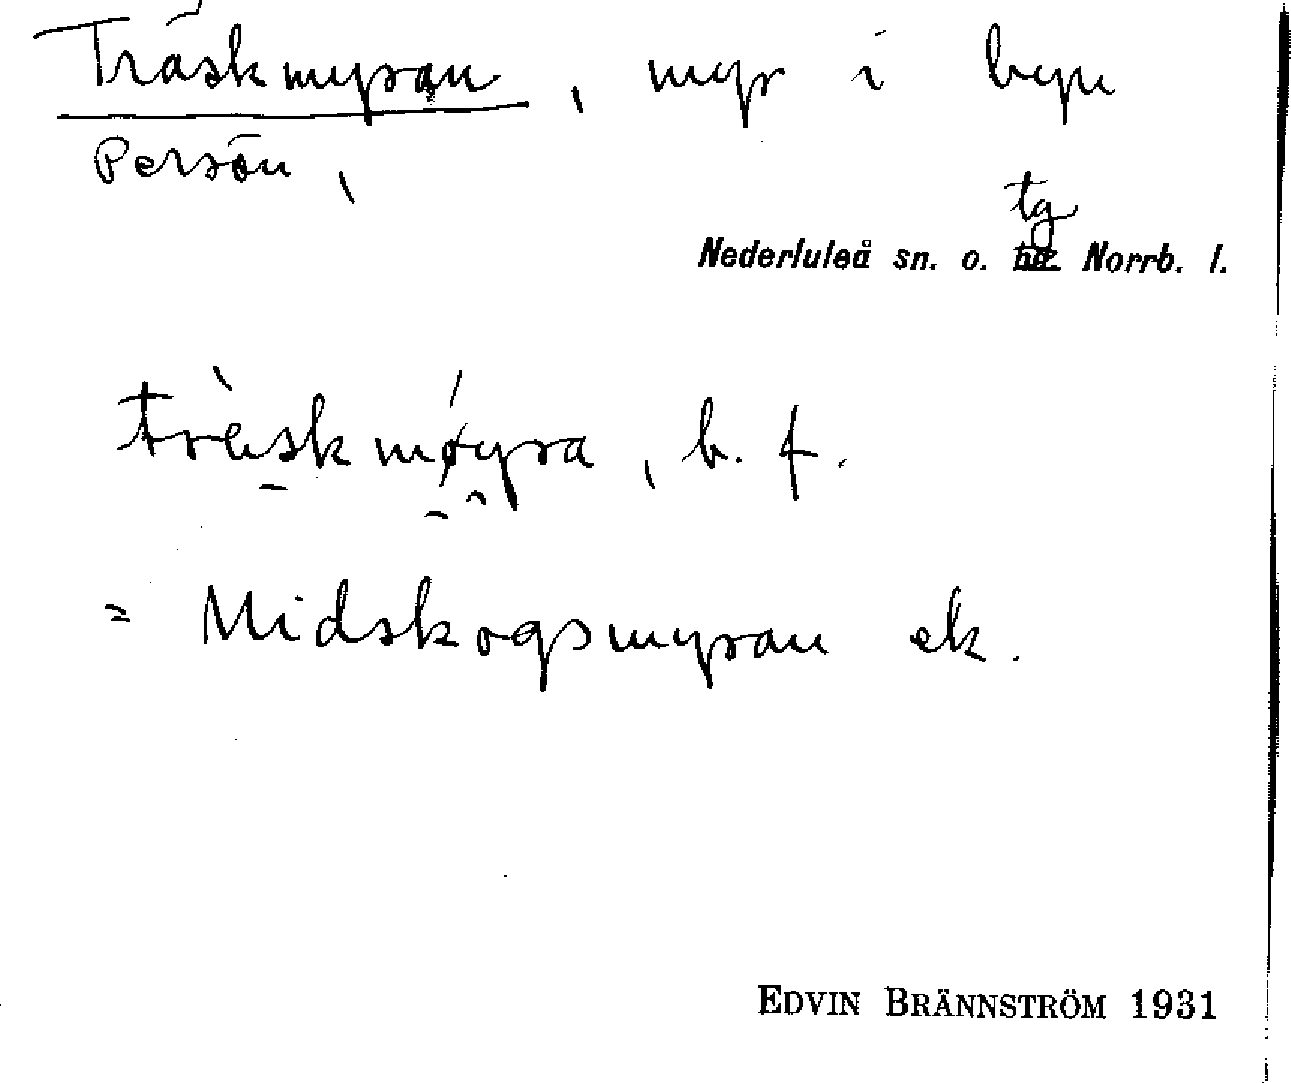 Träskmyran, myr i byn
Persön,
tg
Nederluleå sn. o. Norrb. l.
træskmøyra, b. f.
= Midskogsmyran ek.
EDVIN BRÄNNSTRÖM 1931